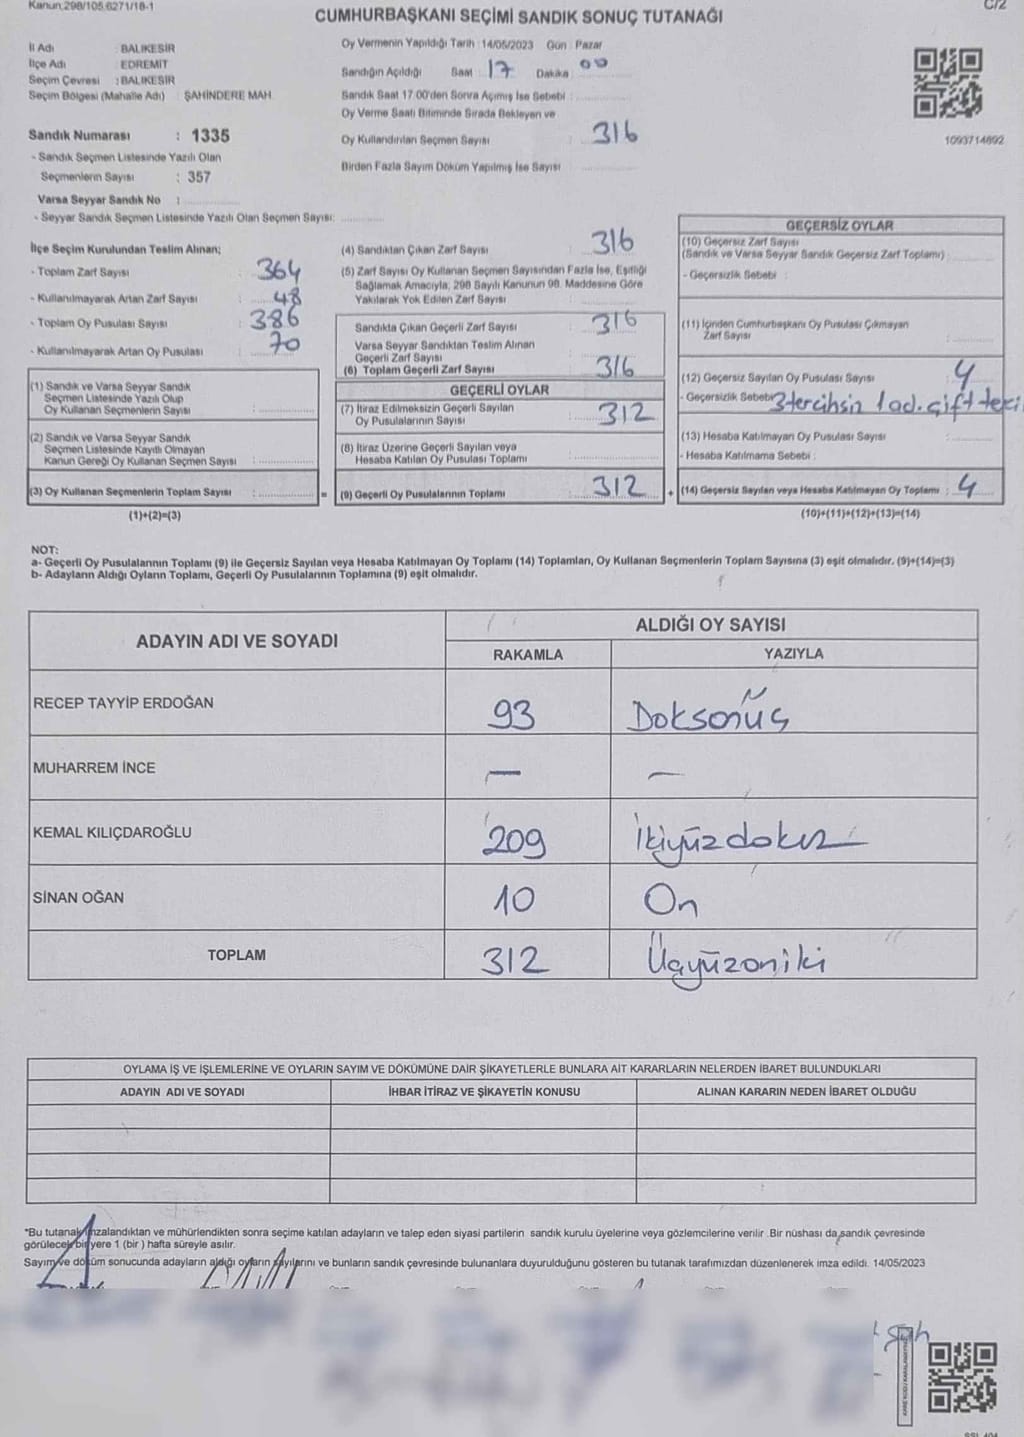 Kanun;298/105,6271/18-1
C/2
CUMHURBAŞKANI SEÇİMİ SANDIK SONUÇ TUTANAĞI
İl Adı : BALIKESİR
İlçe Adı : EDREMİT
Seçim Çevresi : BALIKESİR
Seçim Bölgesi (Mahalle Adı) : ŞAHİNDERE MAH.
Sandık Numarası : 1335
- Sandık Seçmen Listesinde Yazılı Olan
Seçmenlerin Sayısı : 357
Varsa Seyyar Sandık No :
- Seyyar Sandık Seçmen Listesinde Yazılı Olan Seçmen Sayısı:
Oy Vermenin Yapıldığı Tarih : 14/05/2023 Gün : Pazar
Sandığın Açıldığı Saat : 17 Dakika : 00
Sandık Saat 17.00'den Sonra Açımış İse Sebebi :
Oy Verme Saati Bitiminde Sırada Bekleyen ve
Oy Kullandırılan Seçmen Sayısı : 316
Birden Fazla Sayım Döküm Yapılmış İse Sayısı
1093714692
İlçe Seçim Kurulundan Teslim Alınan;
- Toplam Zarf Sayısı : 364
- Kullanılmayarak Artan Zarf Sayısı : 48
- Toplam Oy Pusulası Sayısı : 386
- Kullanılmayarak Artan Oy Pusulası : 70
(1) Sandık ve Varsa Seyyar Sandık
Seçmen Listesinde Yazılı Olup
Oy Kullanan Seçmenlerin Sayısı :
(2) Sandık ve Varsa Seyyar Sandık
Seçmen Listesinde Kayıtlı Olmayan
Kanun Gereği Oy Kullanan Seçmen Sayısı :
(3) Oy Kullanan Seçmenlerin Toplam Sayısı : =
(1)+(2)=(3)
(4) Sandıktan Çıkan Zarf Sayısı : 316
(5) Zarf Sayısı Oy Kullanan Seçmen Sayısından Fazla İse, Eşitliği
Sağlamak Amacıyla; 298 Sayılı Kanunun 98. Maddesine Göre
Yakılarak Yok Edilen Zarf Sayısı :
Sandıkta Çıkan Geçerli Zarf Sayısı : 316
Varsa Seyyar Sandıktan Teslim Alınan
Geçerli Zarf Sayısı
(6) Toplam Geçerli Zarf Sayısı : 316
GEÇERLİ OYLAR
(7) İtiraz Edilmeksizin Geçerli Sayılan
Oy Pusulalarının Sayısı : 312
(8) İtiraz Üzerine Geçerli Sayılan veya
Hesaba Katılan Oy Pusulası Toplamı :
(9) Geçerli Oy Pusulalarının Toplamı : 312 +
GEÇERSİZ OYLAR
(10) Geçersiz Zarf Sayısı
(Sandık ve Varsa Seyyar Sandık Geçersiz Zarf Toplamı) :
- Geçersizlik Sebebi :
(11) İçinden Cumhurbaşkanı Oy Pusulası Çıkmayan
Zarf Sayısı :
(12) Geçersiz Sayılan Oy Pusulası Sayısı : 4
- Geçersizlik Sebebi 3 tercihsin 1 ad. çift
(13) Hesaba Katılmayan Oy Pusulası Sayısı :
- Hesaba Katılmama Sebebi :
(14) Geçersiz Sayılan veya Hesaba Katılmayan Oy Toplamı : 4
(10)+(11)+(12)+(13)=(14)
NOT:
a- Geçerli Oy Pusulalarının Toplamı (9) ile Geçersiz Sayılan veya Hesaba Katılmayan Oy Toplamı (14) Toplamları, Oy Kullanan Seçmenlerin Toplam Sayısına (3) eşit olmalıdır. (9)+(14)=(3)
b- Adayların Aldığı Oyların Toplamı, Geçerli Oy Pusulalarının Toplamına (9) eşit olmalıdır.
ADAYIN ADI VE SOYADI
ALDIĞI OY SAYISI
RAKAMLA YAZIYLA
RECEP TAYYİP ERDOĞAN 93 Doksanüç
MUHARREM İNCE — —
KEMAL KILIÇDAROĞLU 209 İkiyüzdokuz
SİNAN OĞAN 10 On
TOPLAM 312 Üçyüzoniki
OYLAMA İŞ VE İŞLEMLERİNE VE OYLARIN SAYIM VE DÖKÜMÜNE DAİR ŞİKAYETLERLE BUNLARA AİT KARARLARIN NELERDEN İBARET BULUNDUKLARI
ADAYIN ADI VE SOYADI İHBAR İTİRAZ VE ŞİKAYETİN KONUSU ALINAN KARARIN NEDEN İBARET OLDUĞU
*Bu tutanak imzalandıktan ve mühürlendikten sonra seçime katılan adayların ve talep eden siyasi partilerin sandık kurulu üyelerine veya gözlemcilerine verilir. Bir nüshası da sandık çevresinde
görülecek bir yere 1 (bir) hafta süreyle asılır.
Sayım ve döküm sonucunda adayların aldığı oyların sayılarını ve bunların sandık çevresinde bulunanlara duyurulduğunu gösteren bu tutanak tarafımızdan düzenlenerek imza edildi. 14/05/2023